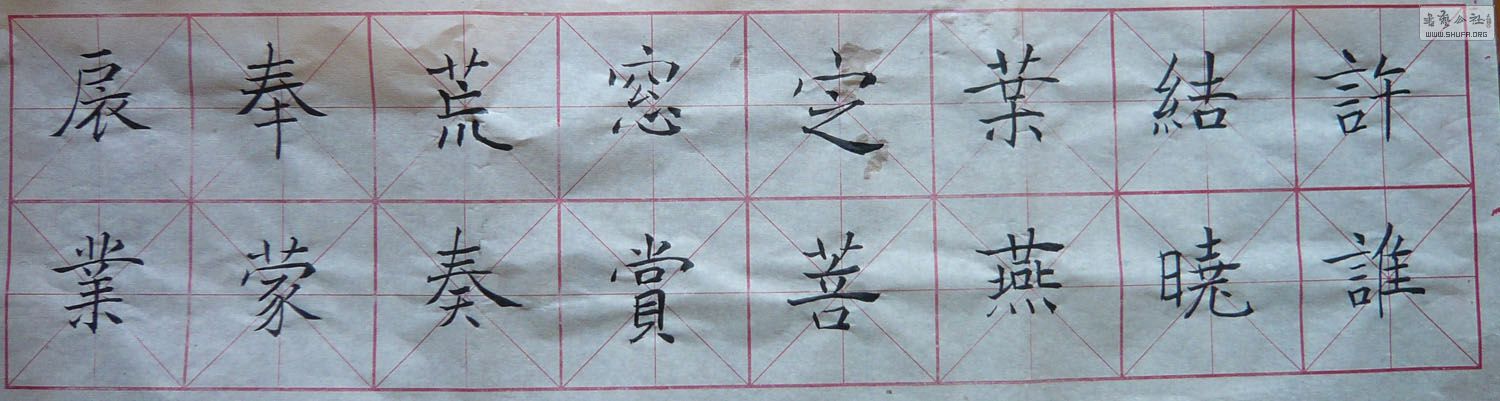 許誰
結曉
葉燕
定菩
窓賞
荒奏
奉蒙
扆業
书艺公社
WWW.SHUFA.ORG